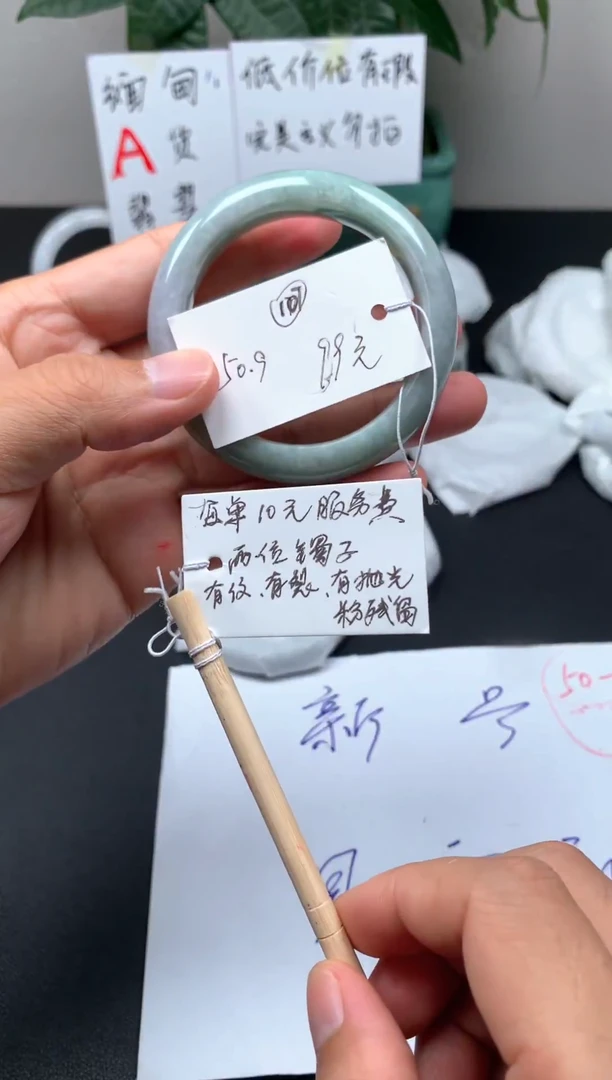 缅甸
A 货
翡翠
低价位有瑕
完美主义勿拍
107
50.9 99元
每单10元服务费
两位镯子
有纹、有裂、有抛光
粉残留
新号
50-